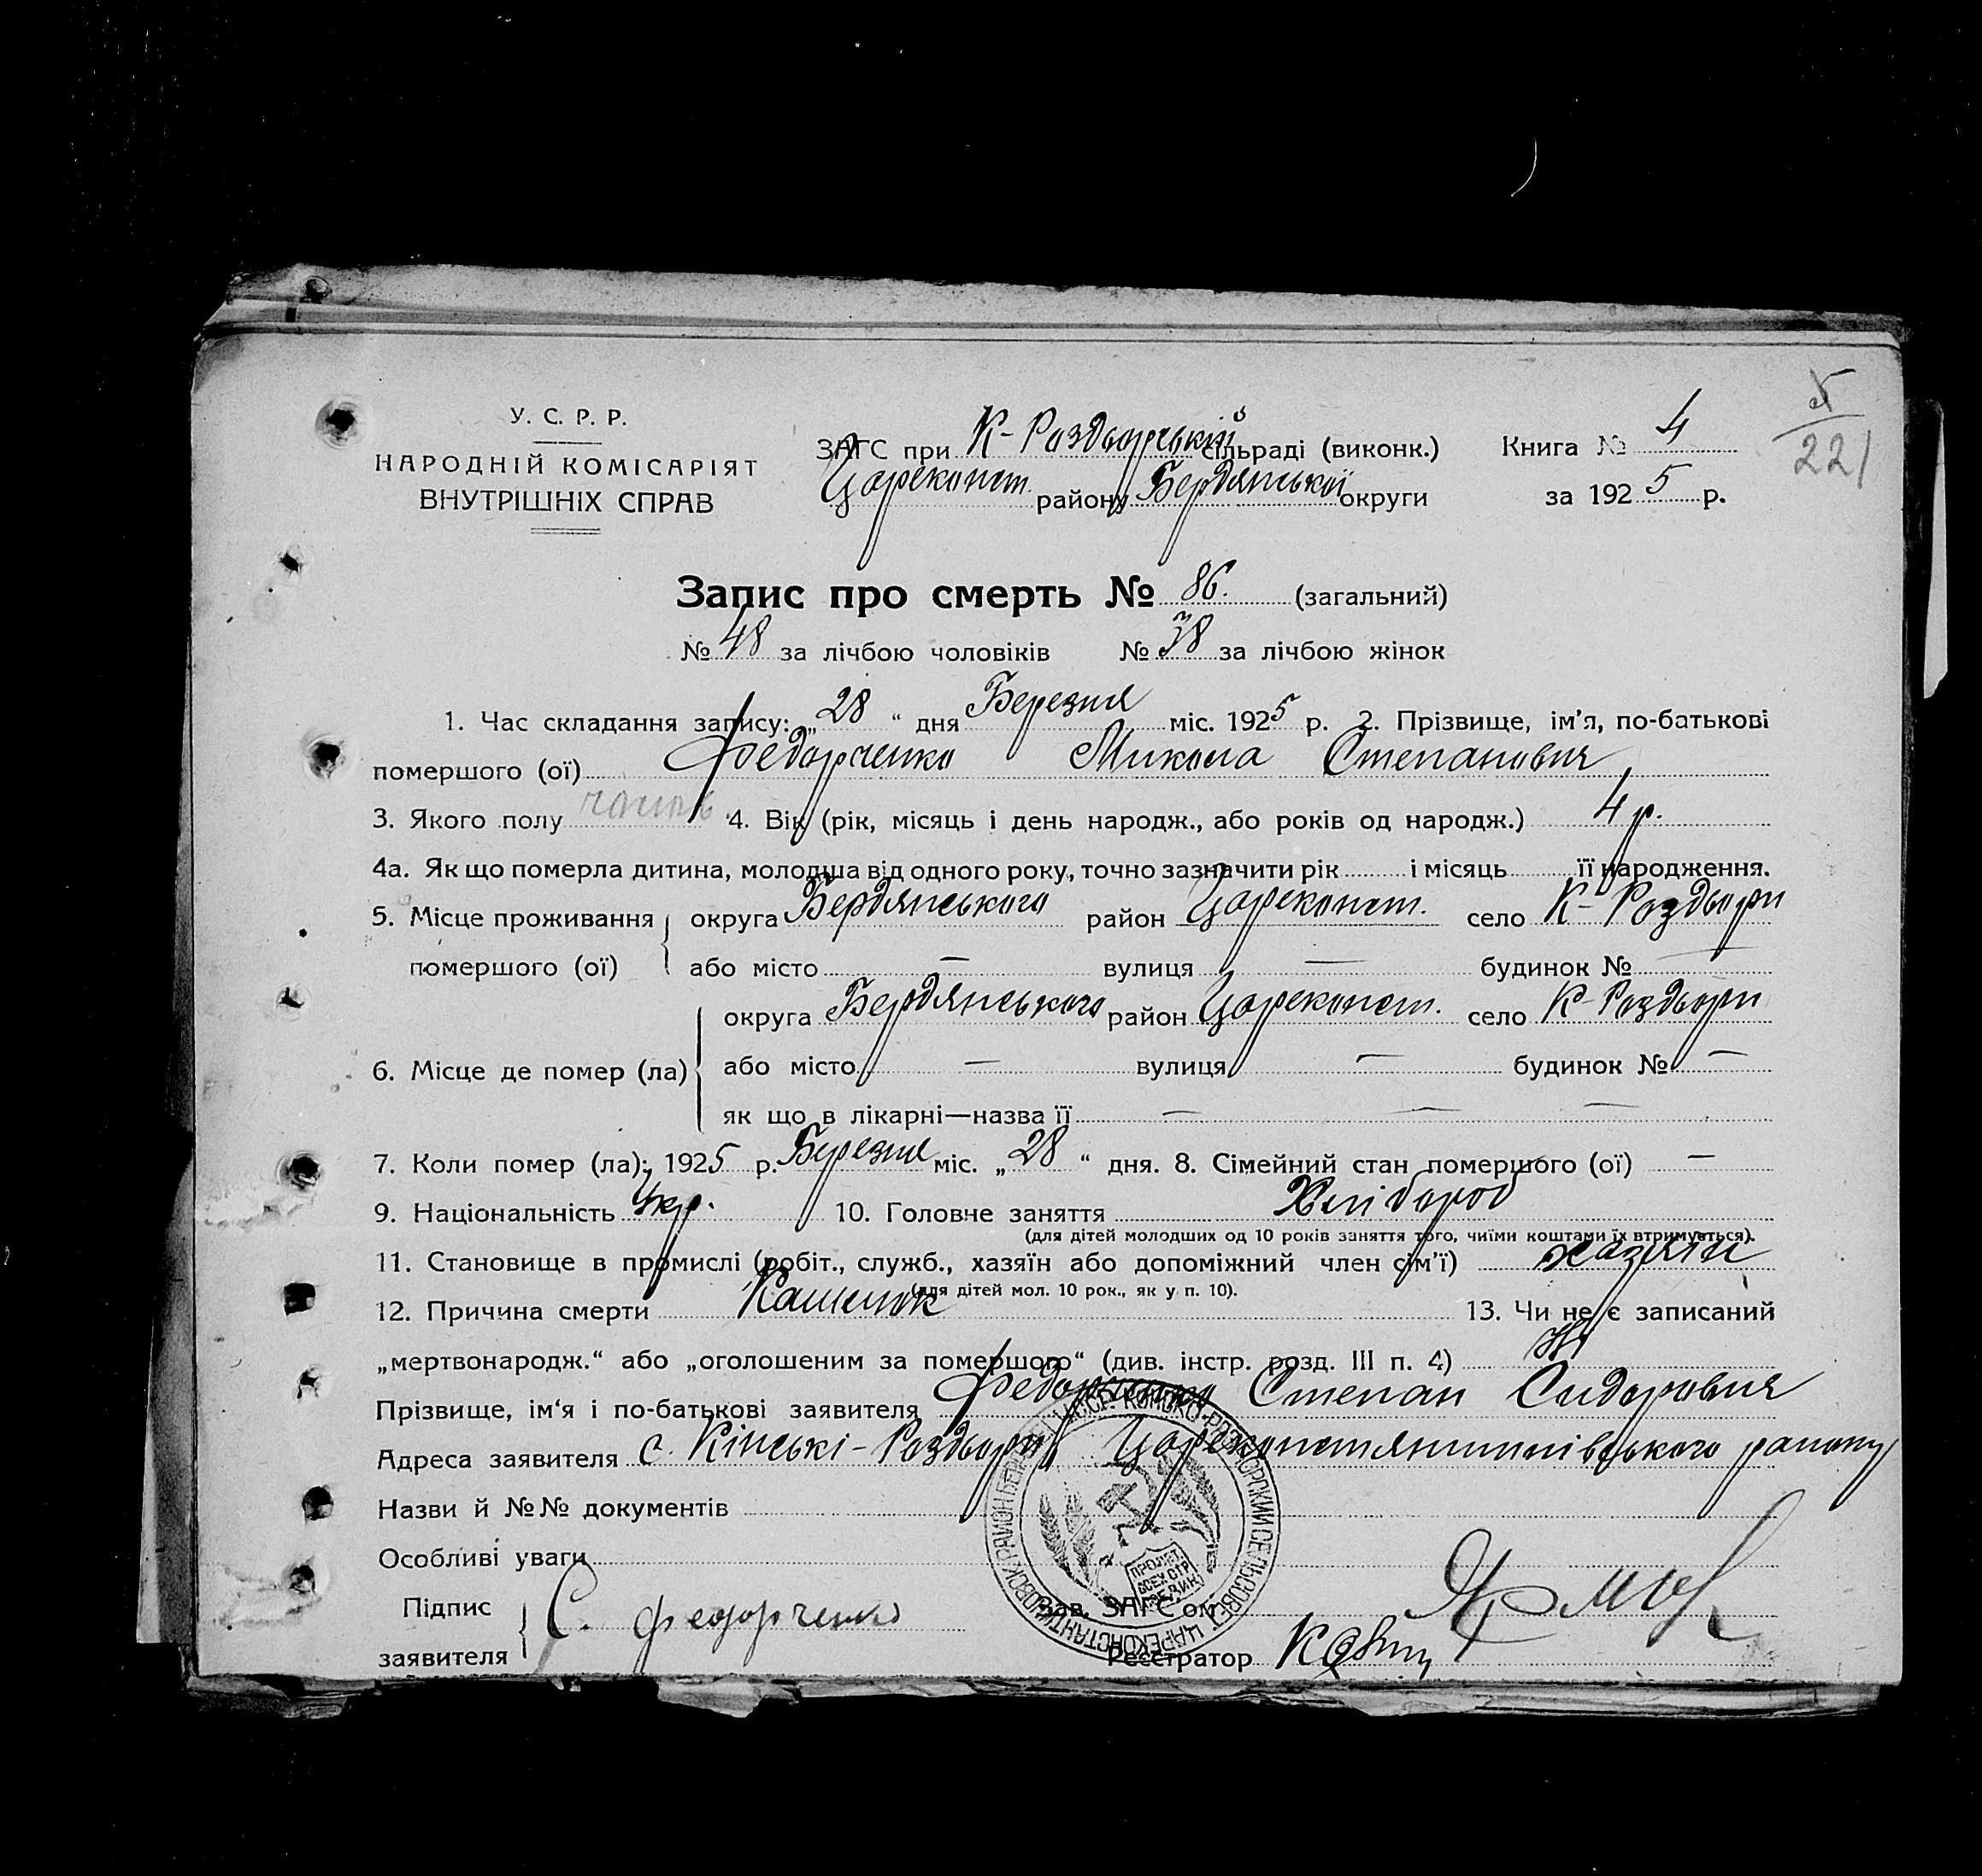 5
221
У. С. Р. Р.
НАРОДНІЙ КОМІСАРІЯТ
ВНУТРІШНІХ СПРАВ
ЗАГС при К-Роздорській сільраді (виконк.) Книга № 4
Цареконст. району Бердянської округи за 1925 р.
Запис про смерть № 86. (загальний)
№ 48 за лічбою чоловіків № 38 за лічбою жінок
1. Час складання запису: „28“ дня Березня міс. 1925 р. 2. Прізвище, ім’я, по-батькові
помершого (ої) Федорченко Микола Степанович
3. Якого полу 4. Вік (рік, місяць і день народж., або років од народж.) 4 р.
4а. Як що померла дитина, молодша від одного року, точно зазначити рік і місяць її народження.
5. Місце проживання округа Бердянського район Цареконст. село К-Роздори
помершого (ої) або місто — вулиця — будинок № —
округа Бердянського район Цареконст. село К-Роздори
6. Місце де помер (ла) або місто — вулиця — будинок № —
як що в лікарні—назва її — — —
7. Коли помер (ла): 1925 р. Березня міс. „28“ дня. 8. Сімейний стан помершого (ої) —
9. Національність Укр. 10. Головне заняття Хлібороб
(для дітей молодших од 10 років заняття того, чиїми коштами їх втримується).
11. Становище в промислі (робіт., служб., хазяїн або допоміжний член сім’ї) хазяїн
(для дітей мол. 10 рок., як у п. 10).
12. Причина смерти Кашлюк 13. Чи не є записаний
„мертвонародж.“ або „оголошеним за помершого“ (див. інстр. розд. III п. 4) Ні
Прізвище, ім‘я і по-батькові заявителя Федорченко Степан Сидорович
Адреса заявителя с. Кінські-Роздори Цареконстянтинівського району
Назви й №№ документів
Особливі уваги
Підпис
заявителя С. Федорченко
Зав. ЗАГС‘ом
Реєстратор
УССР КОНСКО-РАЗДОРСКИЙ СЕЛЬСОВЕТ ЦАРЕКОНСТАНТИНОВСК РАЙОН
ПРОЛЕТ. ВСЕХ СТР. ЕДИН